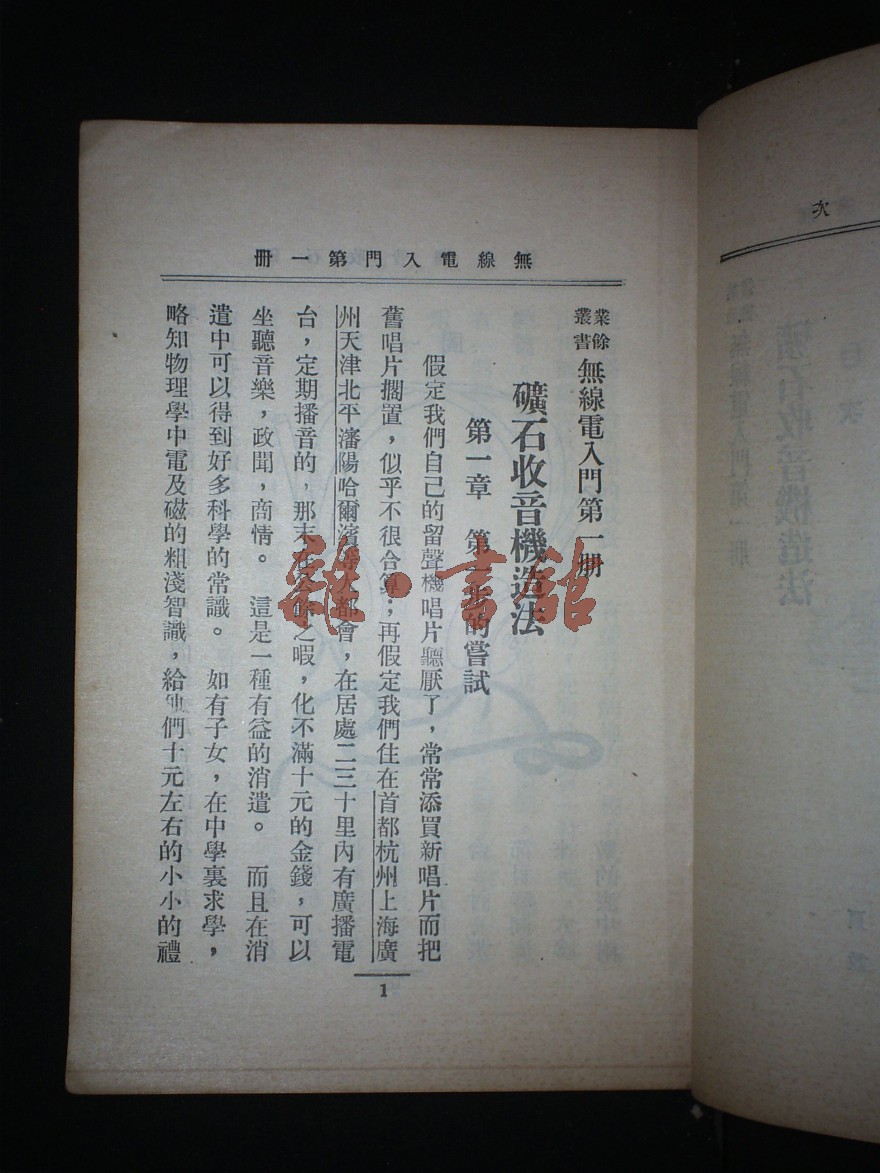 無線電入門第一冊
業餘叢書 無線電入門第一册
礦石收音機造法
第一章　第一步的嘗試
假定我們自己的留聲機唱片聽厭了，常常添買新唱片而把
舊唱片擱置，似乎不很合算；再假定我們住在首都杭州上海廣
州天津北平瀋陽哈爾濱等大都會，在居處二三十里內有廣播電
台，定期播音的，那末在公餘之暇，化不滿十元的金錢，可以
坐聽音樂，政聞，商情。　這是一種有益的消遣。　而且在消
遣中可以得到好多科學的常識。　如有子女，在中學裏求學，
略知物理學中電及磁的粗淺智識，給他們十元左右的小小的禮
1
雜·書館
次